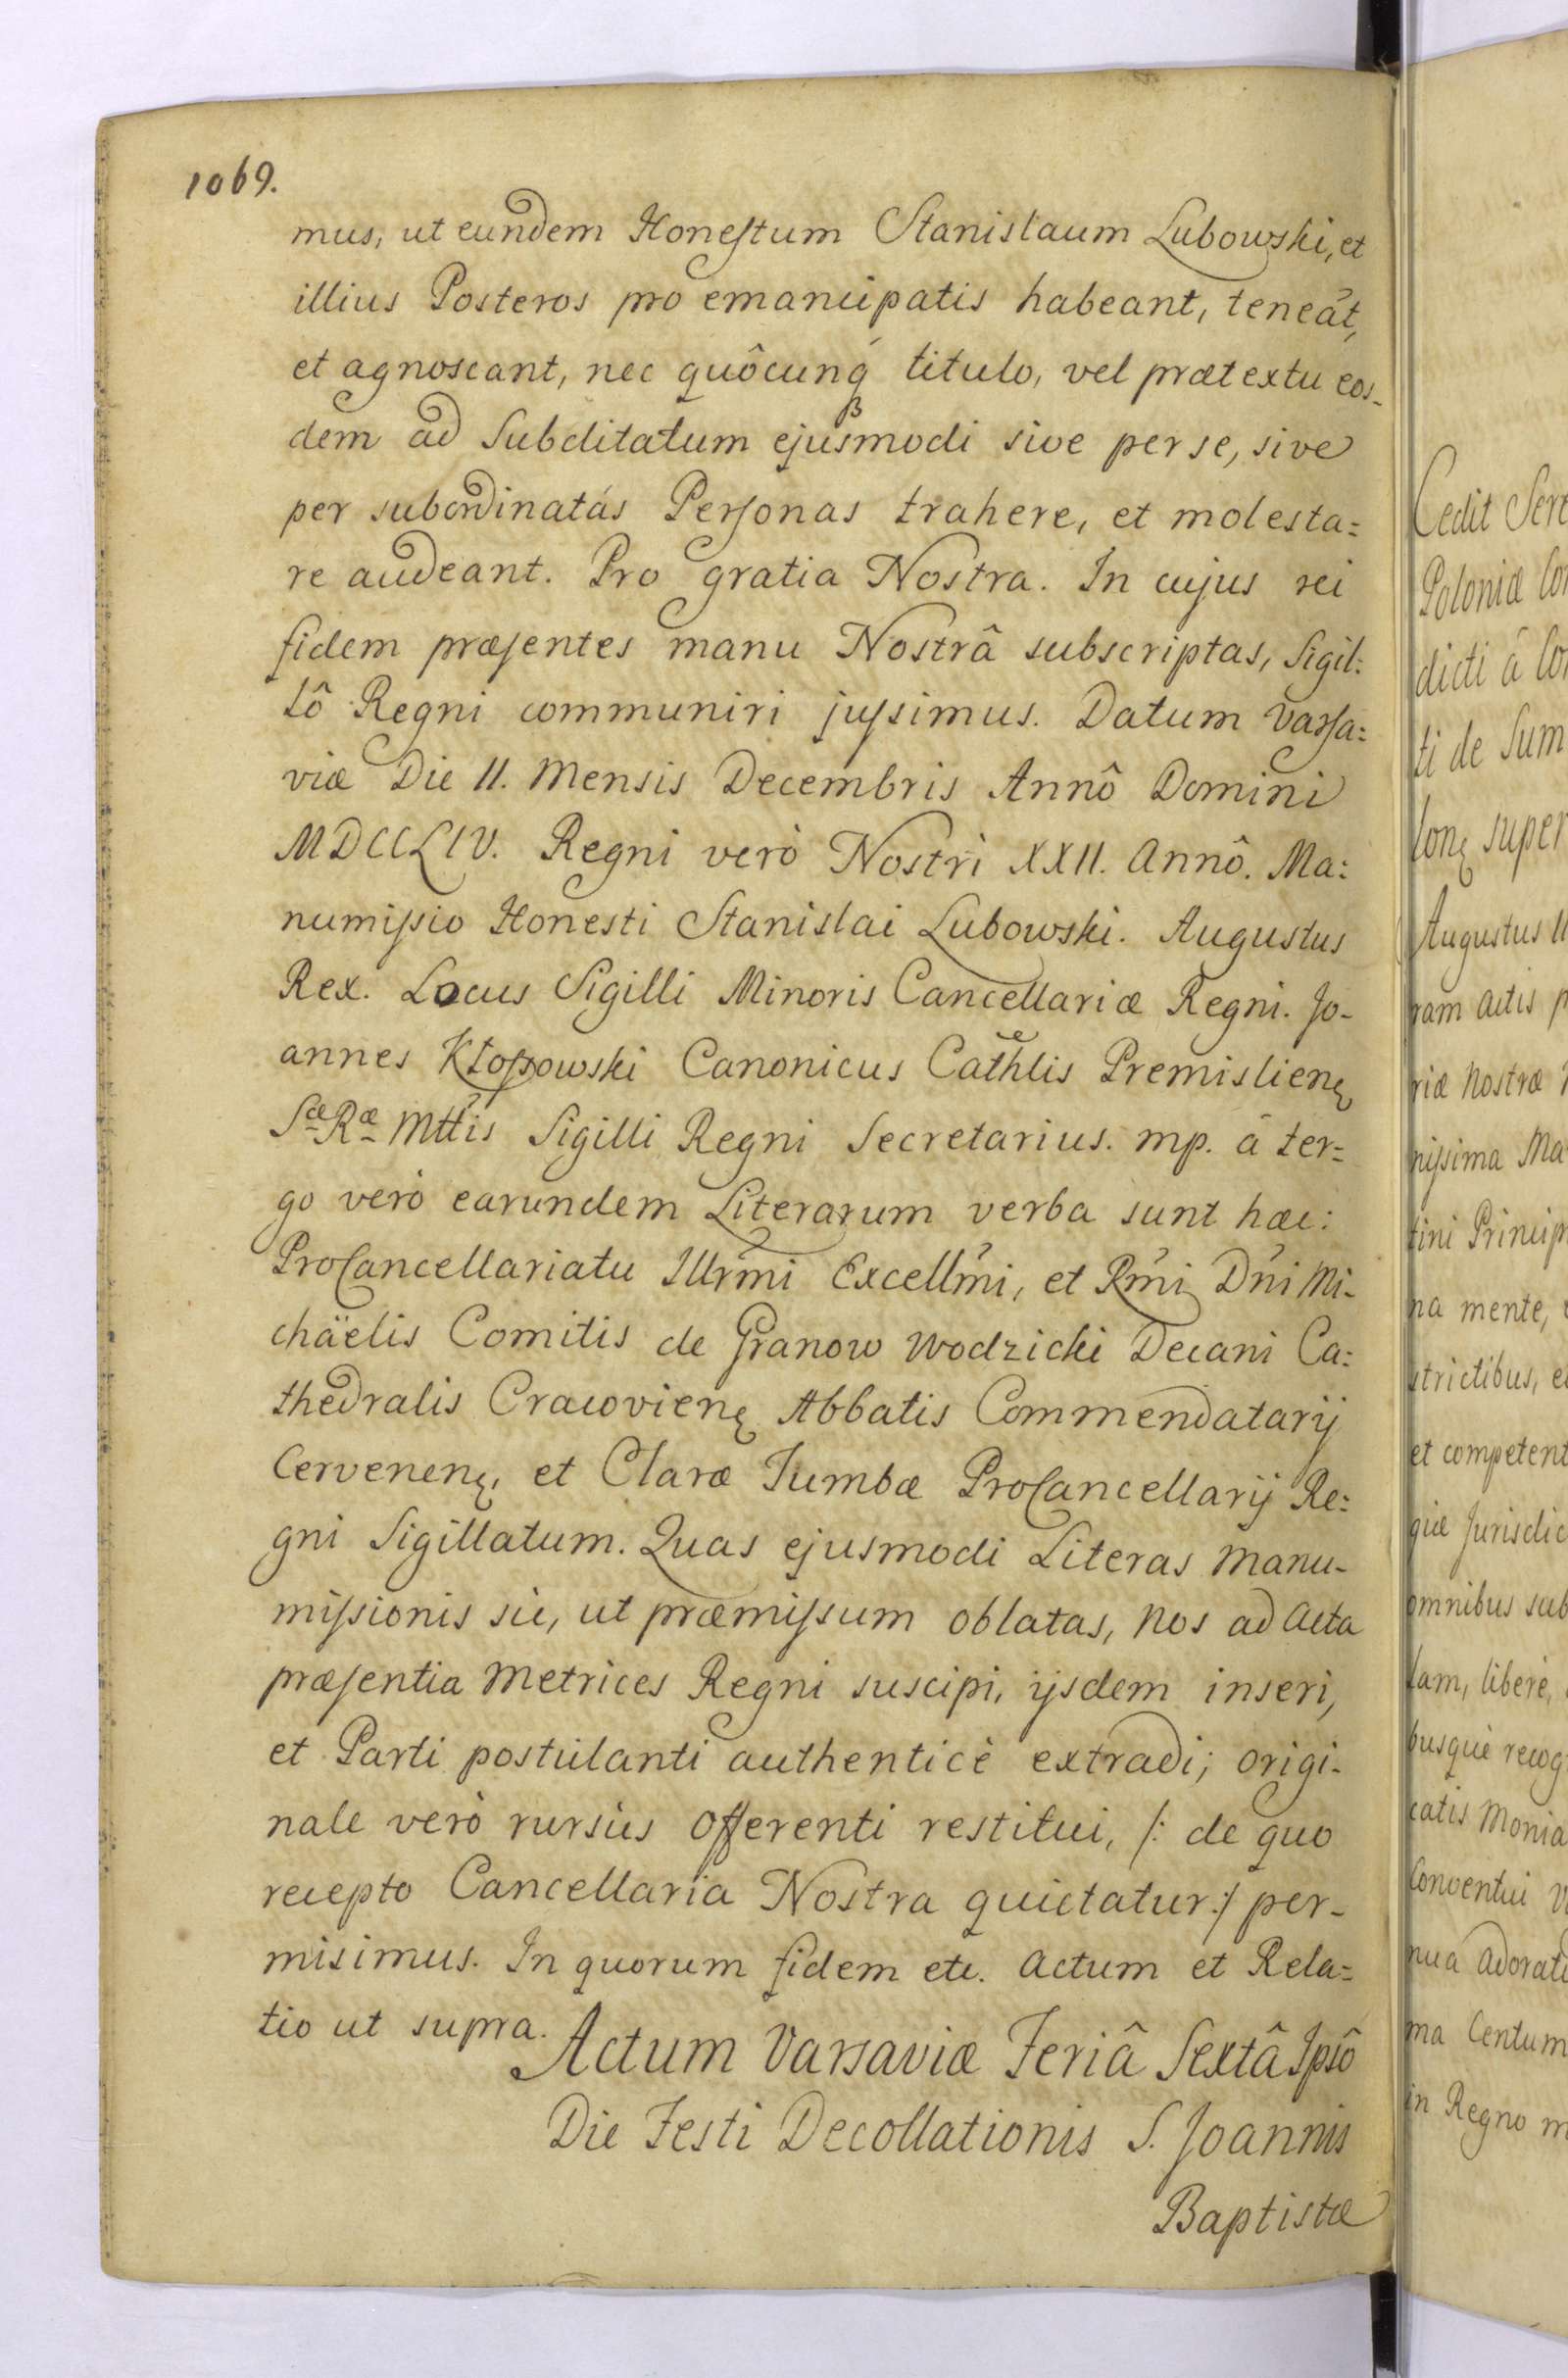 1069.
mus, ut eundem Honestum Stanislaum Lubowski, et
illius Posteros pro emancipatis habeant, teneãt,
et agnoscant, nec quôcunq́ titulo, vel prætextu eos-
dem ad Subditatum ejusmodi sive per se, sive
per subordinatás Personas trahere, et molesta=
re audeant. Pro gratia Nostra. In cujus rei
fidem præsentes manu Nostrâ subscriptas, Sigil:
lô Regni communiri jussimus. Datum Varsa=
viæ Die 11. Mensis Decembris Annô Domini
MDCCLIV. Regni verò Nostri XXII. Annô. Ma:
numissio Honesti Stanislai Lubowski. Augustus
Rex. Locus Sigilli Minoris Cancellariæ Regni. Jo-
annes Kłossowski Canonicus Cathlis Premislienę
Sæ Ræ Mttis Sigilli Regni Secretarius. mp. â ter=
go verò earundem Literarum verba sunt hæc:
ProCancellariatu Illrm̃i Excellm̃i, et Rm̃i Dñi Mi-
chäelis Comitis de Granow Wodzicki Decani Ca:
thedralis Cracovienę Abbatis Commendatarij
Cervenenę, et Claræ Tumbæ ProCancellarij Re:
gni Sigillatum. Quas ejusmodi Literas Manu-
missionis sic, ut præmissum oblatas, Nos ad Acta
præsentia Metrices Regni suscipi, ijsdem inseri,
et Parti postulanti authenticè extradi; origi-
nale verò rursùs Offerenti restitui, /: de quo
recepto Cancellaria Nostra quietatur :/ per-
misimus. In quorum fidem etc. Actum et Rela=
tio ut supra.
Actum Varsaviæ Feriâ Sextâ Ipsô
Die Festi Decollationis S. Joannis
Baptistæ
Cedit Sere
Poloniæ Con
dicti â Con
ti de Sum
lonę super
Augustus II
ram Actis p
riæ Nostræ
nissima Ma
tini Princip
na mente,
strictibus, e
et competent
giæ Jurisdic
omnibus sub
lam, liberè,
busquè recog
catis Monia
Conventui V
nua adorati
ma Centum
in Regno m